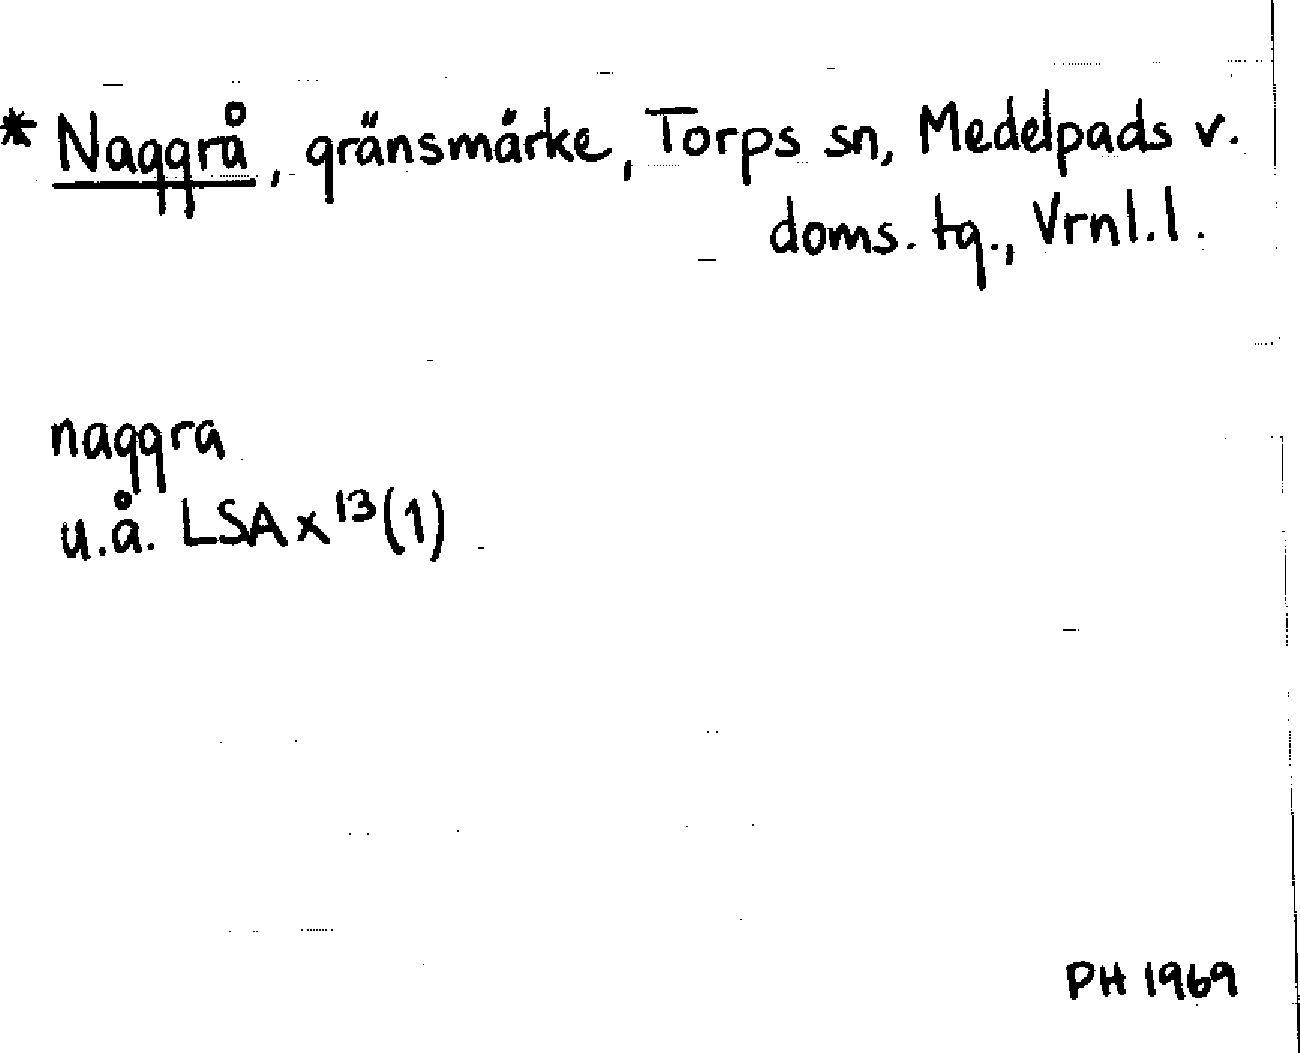 * Naggrå, gränsmärke, Torps sn, Medelpads v.
doms. tg., Vrnl.l.
naggra
u.å. LSA x 13(1)
PH 1969